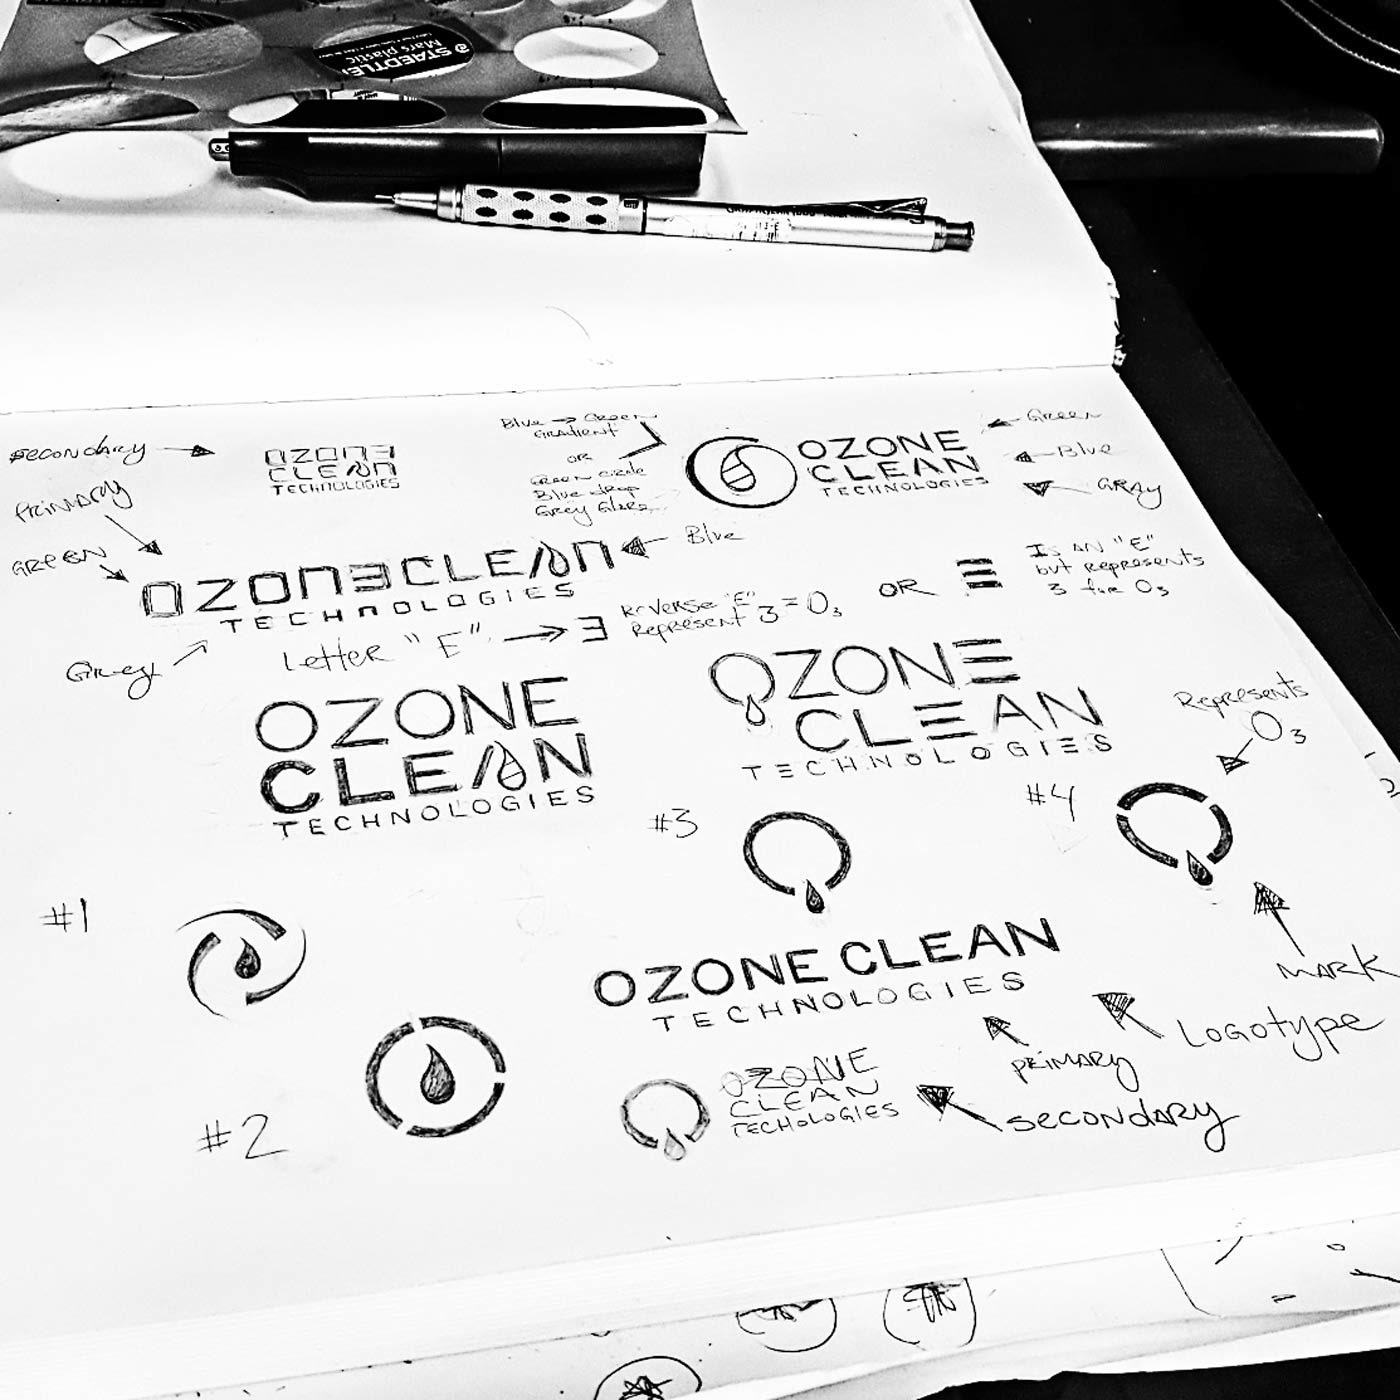 STAEDTLER
Mars plastic
Secondary
OZONE
CLEAN
TECHNOLOGIES
Blue → Green
GRADIENT
OR
Green circle
Blue drop
Grey Glare
OZONE
CLEAN
TECHNOLOGIES
Green
Blue
GRAY
PRIMARY
GREEN
OZONƎCLEAN
TECHNOLOGIES
Blue
Grey
Letter "E" → Ǝ
Reverse "E"
Represent 3 = O₃
OR
Is AN "E"
but represents
3 for O₃
OZONE
CLEAN
TECHNOLOGIES
OZONE
CLEAN
TECHNOLOGIES
Represents
O₃
#3
#4
#1
MARK
OZONE CLEAN
TECHNOLOGIES
Logotype
PRIMARY
#2
OZONE
CLEAN
TECHOLOGIES
Secondary